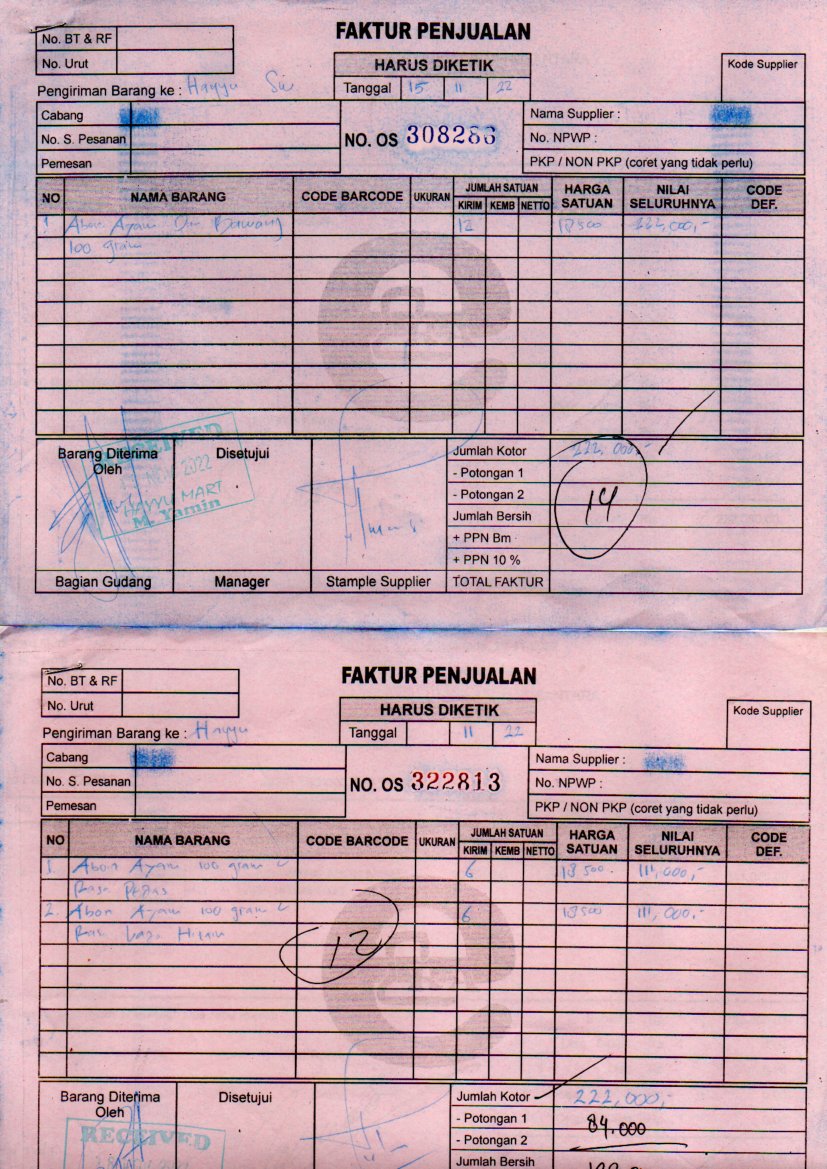 FAKTUR PENJUALAN
No. BT & RF
No. Urut
HARUS DIKETIK
Kode Supplier
Pengiriman Barang ke : Hayyu
Tanggal 15 11 22
Cabang
No. S. Pesanan
Pemesan
NO. OS 308286
Nama Supplier :
No. NPWP :
PKP / NON PKP (coret yang tidak perlu)
NO NAMA BARANG CODE BARCODE UKURAN JUMLAH SATUAN HARGA SATUAN NILAI SELURUHNYA CODE DEF.
KIRIM KEMB NETTO
1 Abon Ayam Bawang 12 18500 222,000,-
100 gram
Barang Diterima Oleh
Disetujui
RECEIVED
NOV 2022
HAYYU MART
M. Yamin
Bagian Gudang
Manager
Stample Supplier
Jumlah Kotor 222,000,-
- Potongan 1
- Potongan 2
14
Jumlah Bersih
+ PPN Bm
+ PPN 10 %
TOTAL FAKTUR
FAKTUR PENJUALAN
No. BT & RF
No. Urut
HARUS DIKETIK
Kode Supplier
Pengiriman Barang ke : Hayyu
Tanggal 11 22
Cabang
No. S. Pesanan
Pemesan
NO. OS 322813
Nama Supplier :
No. NPWP :
PKP / NON PKP (coret yang tidak perlu)
NO NAMA BARANG CODE BARCODE UKURAN JUMLAH SATUAN HARGA SATUAN NILAI SELURUHNYA CODE DEF.
KIRIM KEMB NETTO
1. Abon Ayam 100 gram 6 18500 111,000,-
Rasa Pedas
2. Abon Ayam 100 gram 6 18500 111,000,-
12
Barang Diterima Oleh
Disetujui
RECEIVED
Jumlah Kotor 222,000,-
- Potongan 1 84.000
- Potongan 2
Jumlah Bersih